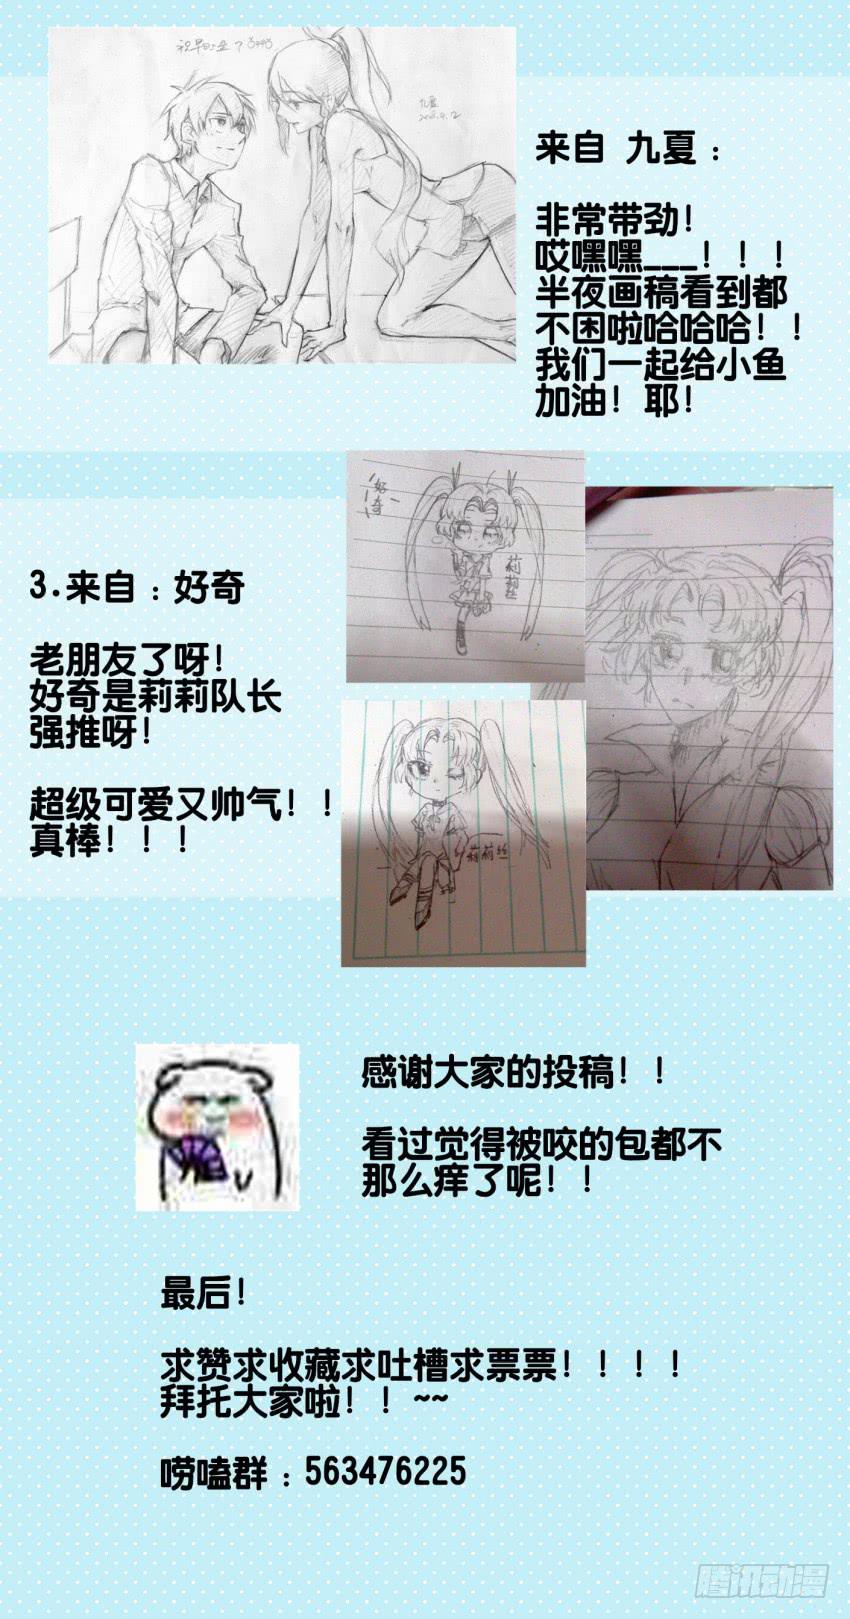 九夏
来自 九夏：
非常带劲！
哎嘿嘿___！！！
半夜画稿看到都
不困啦哈哈哈！！
我们一起给小鱼
加油！耶！
好奇
莉莉丝
3.来自：好奇
老朋友了呀！
好奇是莉莉队长
强推呀！
超级可爱又帅气！！
真棒！！！
莉莉丝
感谢大家的投稿！！
看过觉得被咬的包都不
那么痒了呢！！
最后！
求赞求收藏求吐槽求票票！！！！
拜托大家啦！！~~
唠嗑群：563476225
腾讯动漫